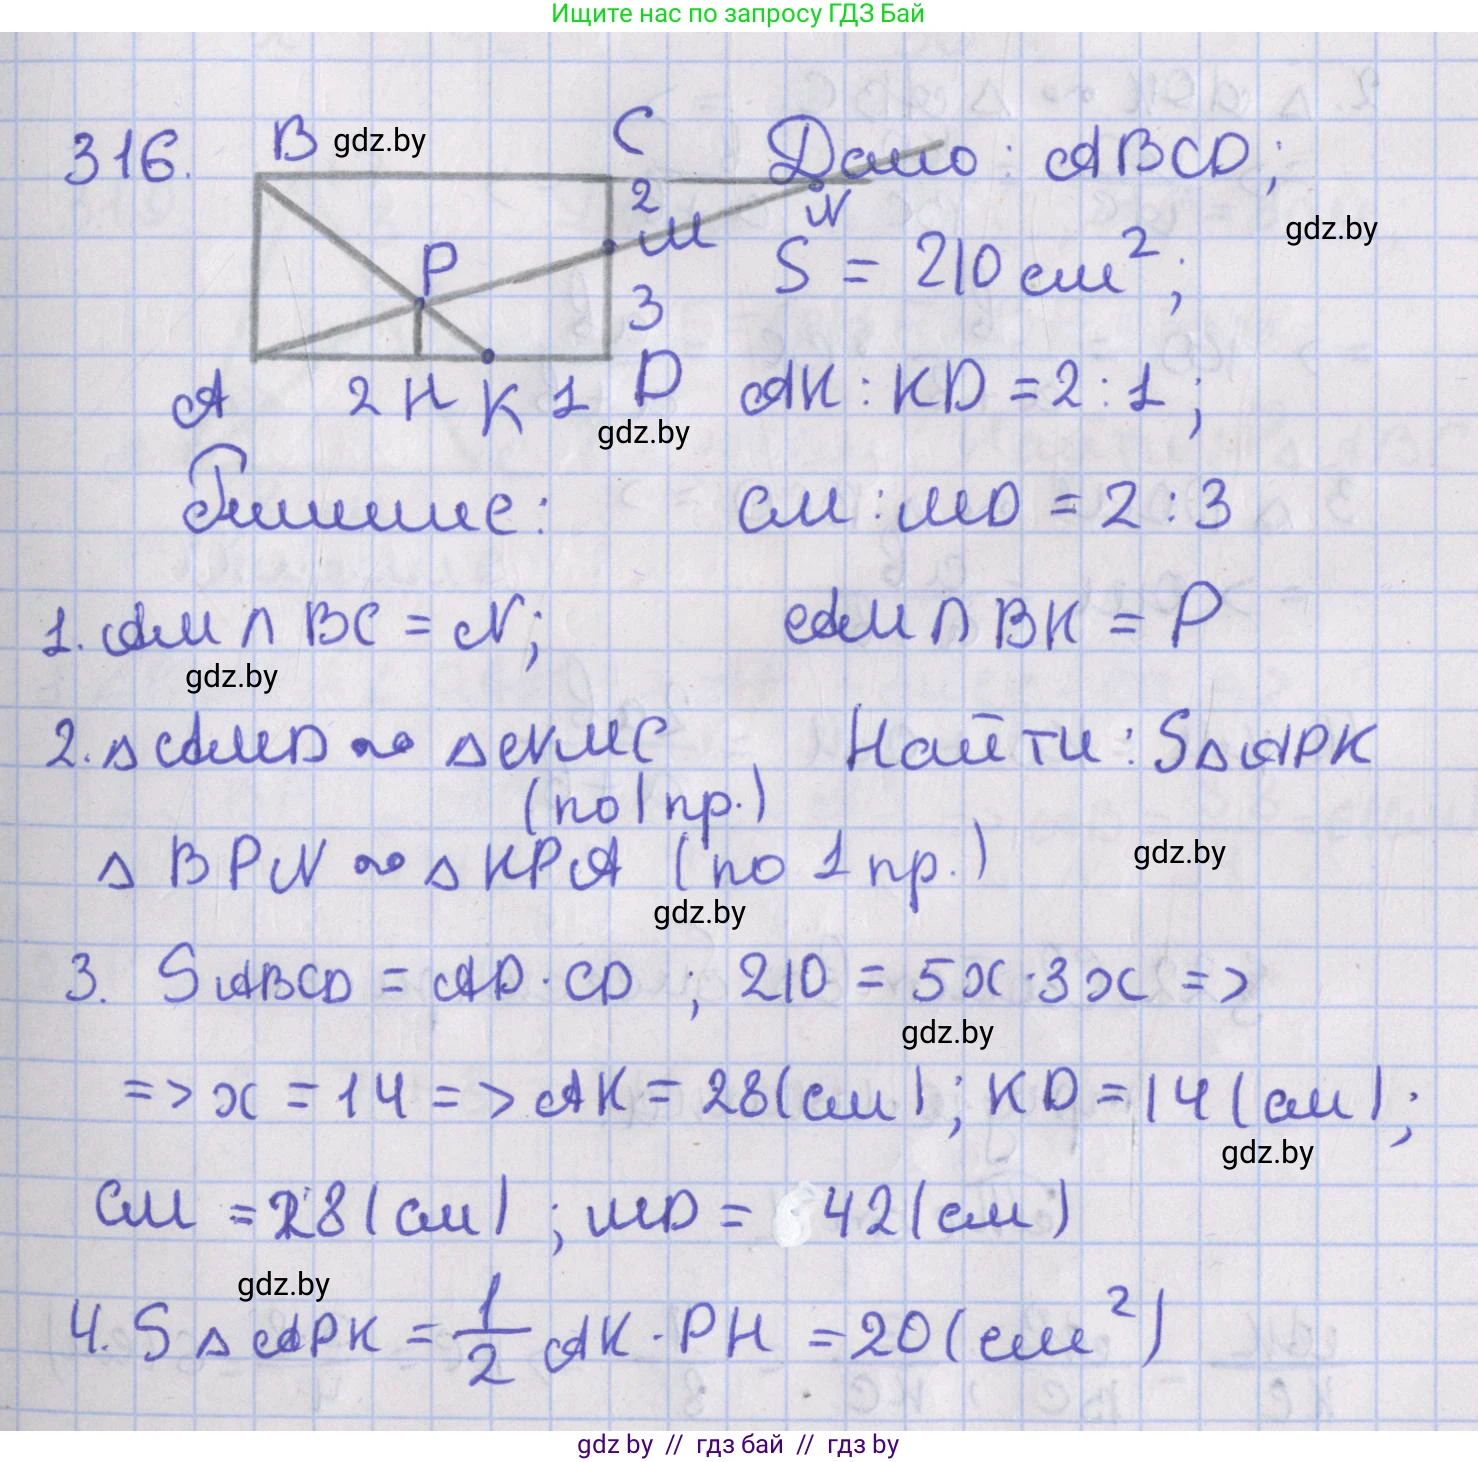 Ищите нас по запросу ГДЗ Бай
316.
B
gdz.by
C
Дано: ABCD;
2
M
N
gdz.by
P
S = 210 см²;
3
A 2 H K 1 D
AK : KD = 2 : 1;
gdz.by
Решение:
CM : MD = 2 : 3
1. AM ∩ BC = N;
AM ∩ BK = P
gdz.by
2. △ AMD ~ △ NMC
(по 1 пр.)
Найти: S△APK
△ BPN ~ △ KPA (по 1 пр.)
gdz.by
gdz.by
3. SABCD = AD · CD ; 210 = 5x · 3x =>
gdz.by
=> x = 14 => AK = 28 (см); KD = 14 (см);
gdz.by
CM = 28 (см) ; MD = 42 (см)
gdz.by
4. S△APK = 1/2 AK · PH = 20 (см²)
gdz.by // гдз бай // гдз by